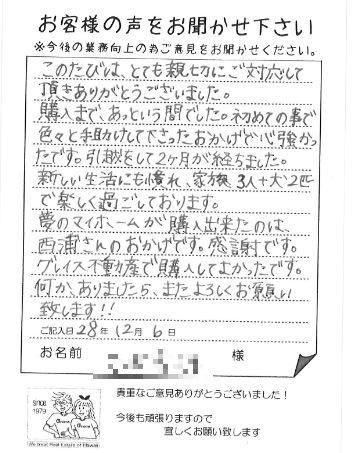 お客様の声をお聞かせ下さい
※今後の業務向上の為ご意見をお聞かせください。
このたびは、とても親切にご対応して
頂きありがとうございました。
購入まで、あっという間でした。初めての事で
色々と手助けして下さったおかげで心強かっ
たです。引越をして2ヶ月が経ちました。
新しい生活にも慣れ、家族3人+犬2匹
で楽しく過ごしております。
夢のマイホームが購入出来たのは、
西浦さんのおかげです。感謝です。
グレイス不動産で購入してよかったです。
何か、ありましたら、またよろしくお願い
致します!!
ご記入日28年12月6日
お名前 様
貴重なご意見ありがとうございました！
SINCE
1979
今後も頑張りますので
宜しくお願い致します